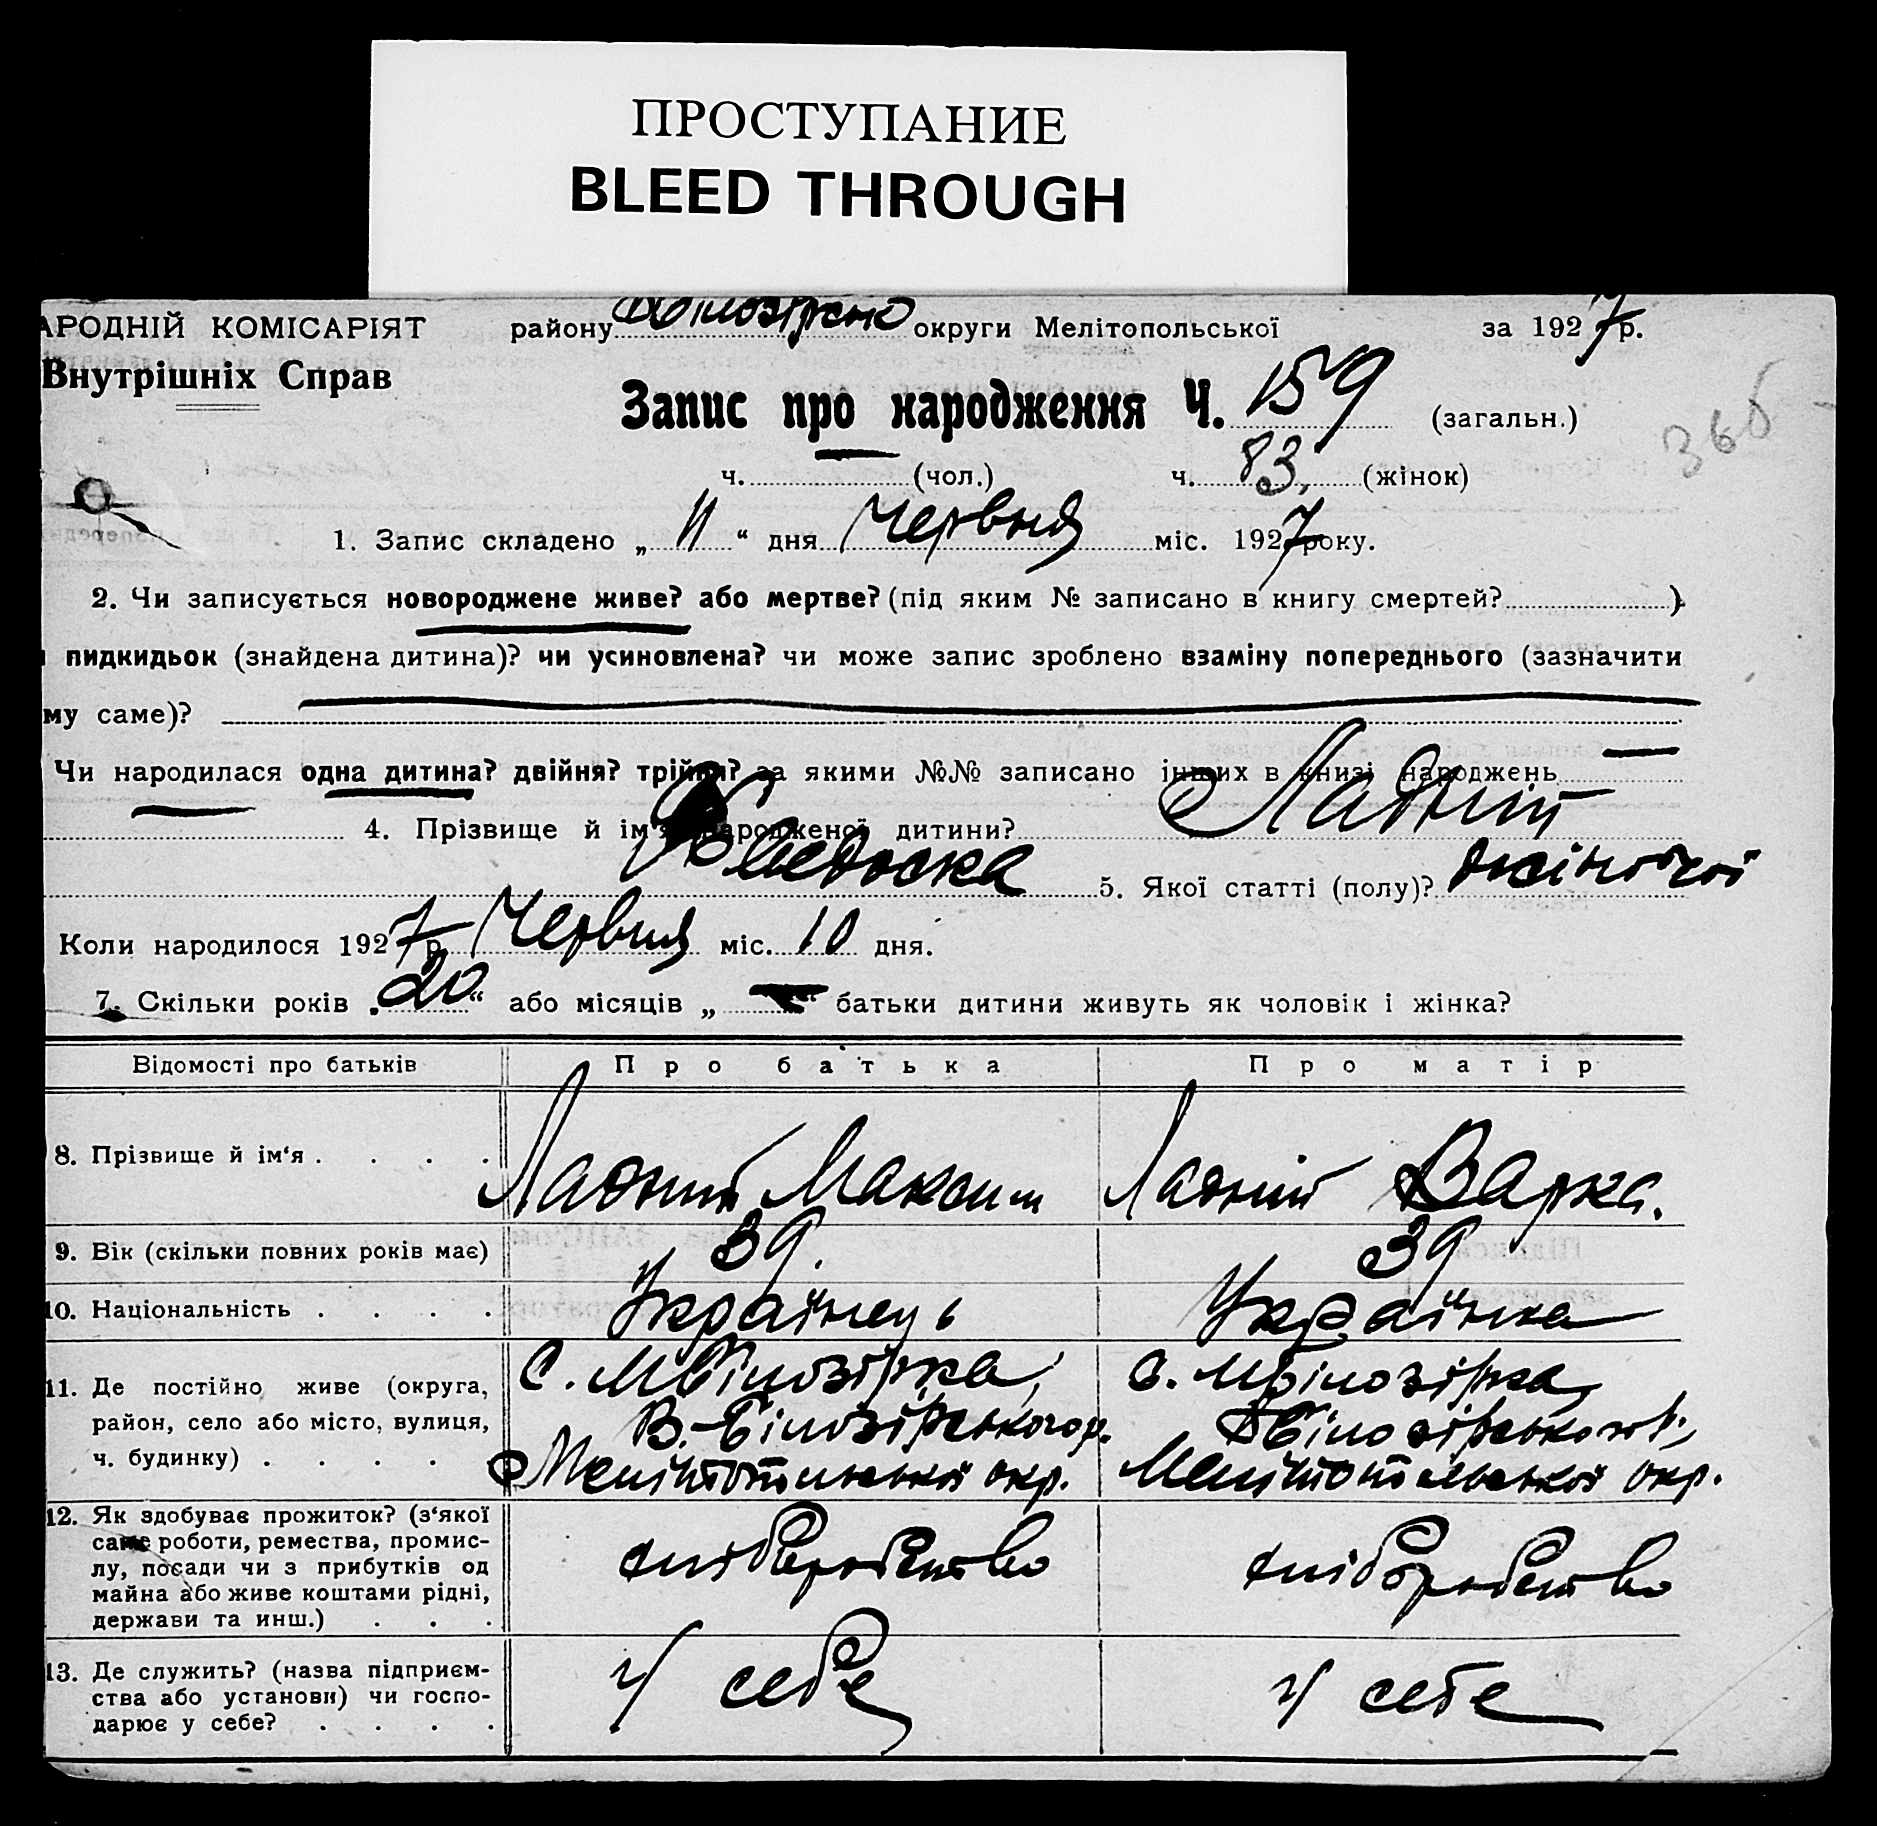 ПРОСТУПАНИЕ
BLEED THROUGH
АРОДНІЙ КОМІСАРІЯТ району округи Мелітопольської за 1927 р.
Внутрішніх Справ
Запис про народження Ч. 159 (загальн.)
366
ч. (чол.) ч. 83. (жінок)
1. Запис складено „ 11 “ дня Червня міс. 1927 року.
2. Чи записується новороджене живе? або мертве? (під яким № записано в книгу смертей? )
пидкидьок (знайдена дитина)? чи усиновлена? чи може запис зроблено взаміну попереднього (зазначити
му саме)?
Чи народилася одна дитина? двійня? трійня? за якими №№ записано інших в книзі народжень —
4. Прізвище й ім'я народженої дитини? Ладний
5. Якої статті (полу)? жіночої
Коли народилося 1927 р. Червня міс. 10 дня.
7. Скільки років „ 20 “ або місяців „ — “ батьки дитини живуть як чоловік і жінка?
Відомості про батьків Про батька Про матір
8. Прізвище й ім‘я . . . . Ладний Максим Ладній Варка.
9. Вік (скільки повних років має) 39. 39
10. Національність . . . . Українець Українка
11. Де постійно живе (округа, С. МБілозірка, с. МБілозірка,
район, село або місто, вулиця, В.-Білозірського р. ВБілозірського р.,
ч. будинку) . . . . Мелітопольської окр. Мелітопольської окр.
12. Як здобуває прожиток? (з‘якої
саме роботи, ремества, промис-
лу, посади чи з прибутків од хліборобство хліборобство
майна або живе коштами рідні,
держави та инш.) . . .
13. Де служить? (назва підприєм-
ства або установи) чи госпо- у себе у себе
дарює у себе? . . . .